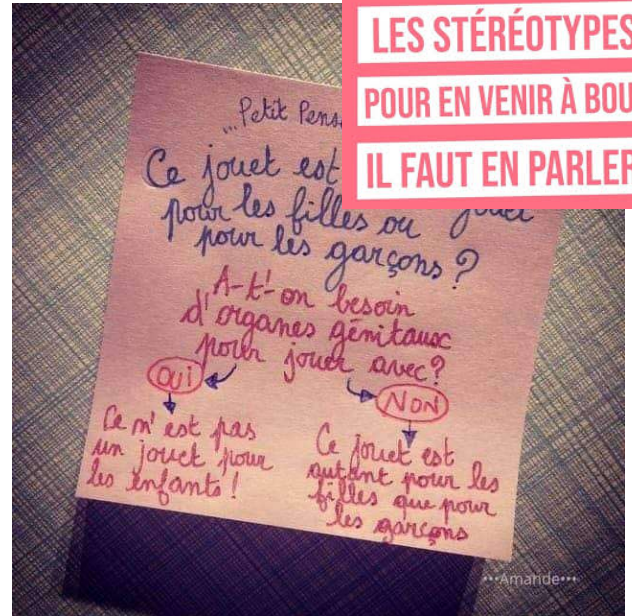 LES STÉRÉOTYPES
POUR EN VENIR À BOU
IL FAUT EN PARLER
Petit Pens
Ce jouet est
pour les filles ou jouet
pour les garçons ?
A-t'-on besoin
d'organes génitaux
pour jouer avec?
OUI
NON
Ce n'est pas
un jouet pour
les enfants !
Ce jouet est
autant pour les
filles que pour
les garçons
•••Amaride•••